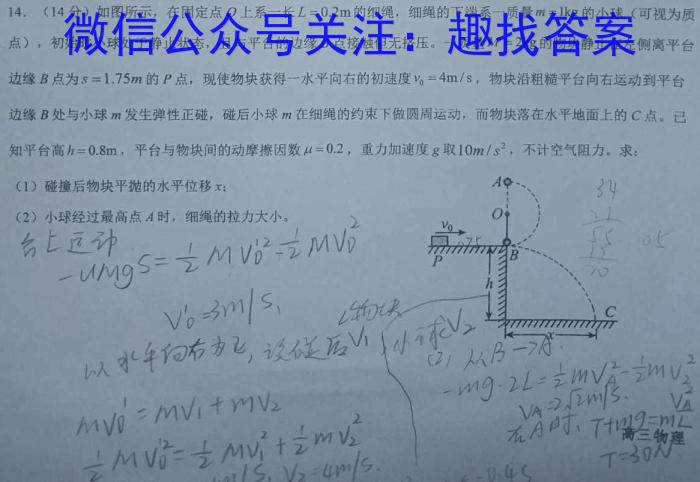 14. (14分)如图所示,在固定点O上系一长L=0.2m的细绳,细绳的下端系一质量m=1kg的小球(可视为质
点),初始
微信公众号关注:趣找答案
边缘B点为s=1.75m的P点,现使物块获得一水平向右的初速度v₀=4m/s,物块沿粗糙平台向右运动到平台
边缘B处与小球m发生弹性正碰,碰后小球m在细绳的约束下做圆周运动,而物块落在水平地面上的C点。已
知平台高h=0.8m,平台与物块间的动摩擦因数μ=0.2,重力加速度g取10m/s²,不计空气阻力。求:
(1)碰撞后物块平抛的水平位移x;
(2)小球经过最高点A时,细绳的拉力大小。
A
O
v₀
P
B
h
x
C
34
台上运动
-μMgS=½MV₀'²-½MV₀²
V₀'=3m/s,
以水平向右为正,设碰后物块V₁,小球V₂
MV₀'=MV₁+mV₂
½MV₀'²=½MV₁²+½mV₂²
m/s, V₂=4m/s.
(2)从B→A.
-mg·2L=½mV_A²-½mV₂²
V_A=2√2m/s.
在A时, T+mg=m V_A²/L
T=30N
高三物理